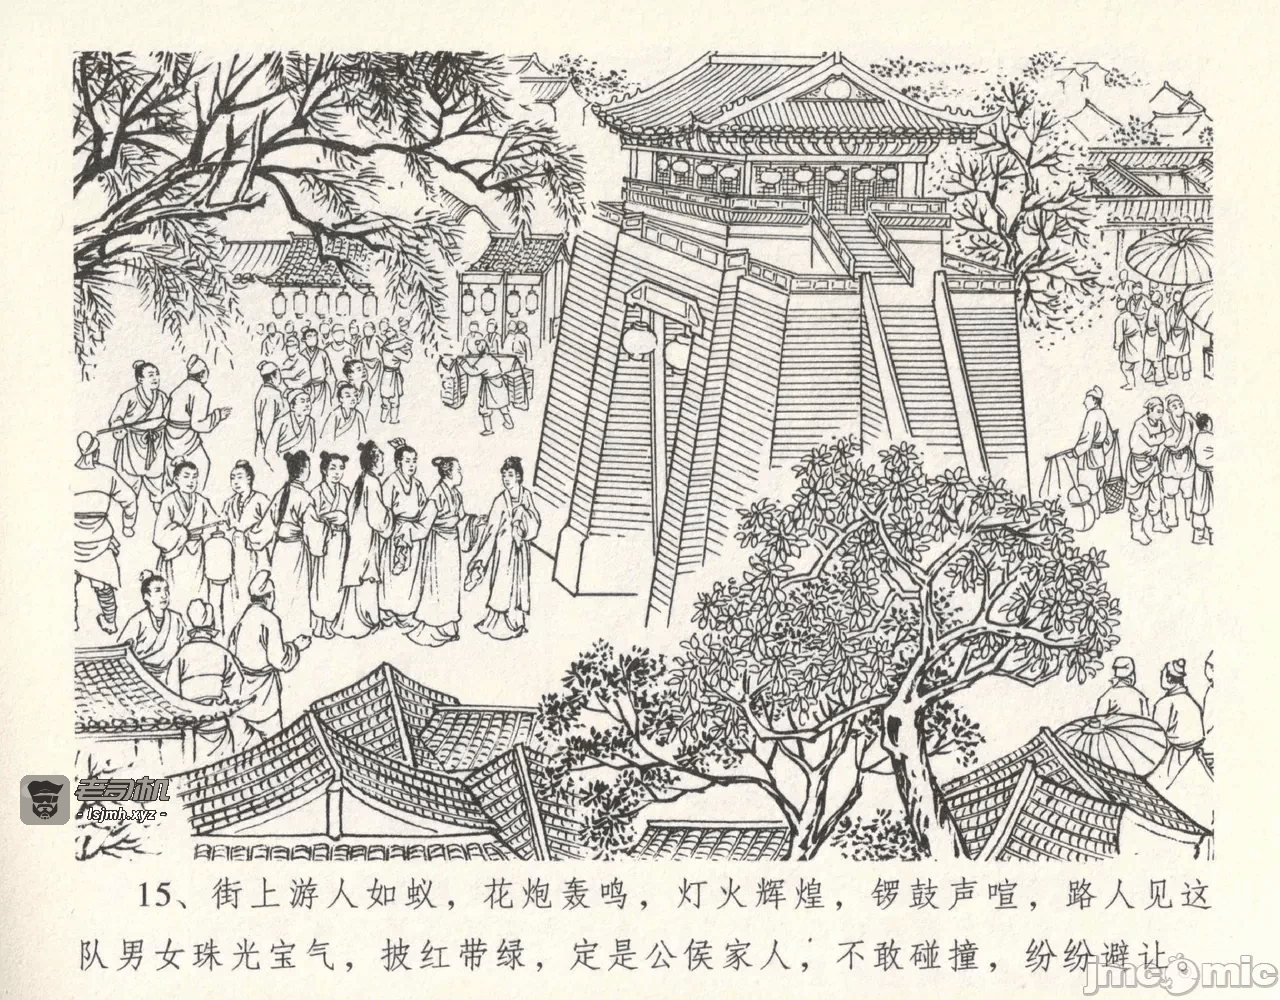 老司机
- lsjmh.xyz -
15、街上游人如蚁，花炮轰鸣，灯火辉煌，锣鼓声喧，路人见这
队男女珠光宝气，披红带绿，定是公侯家人，不敢碰撞，纷纷避让。
jmcomic